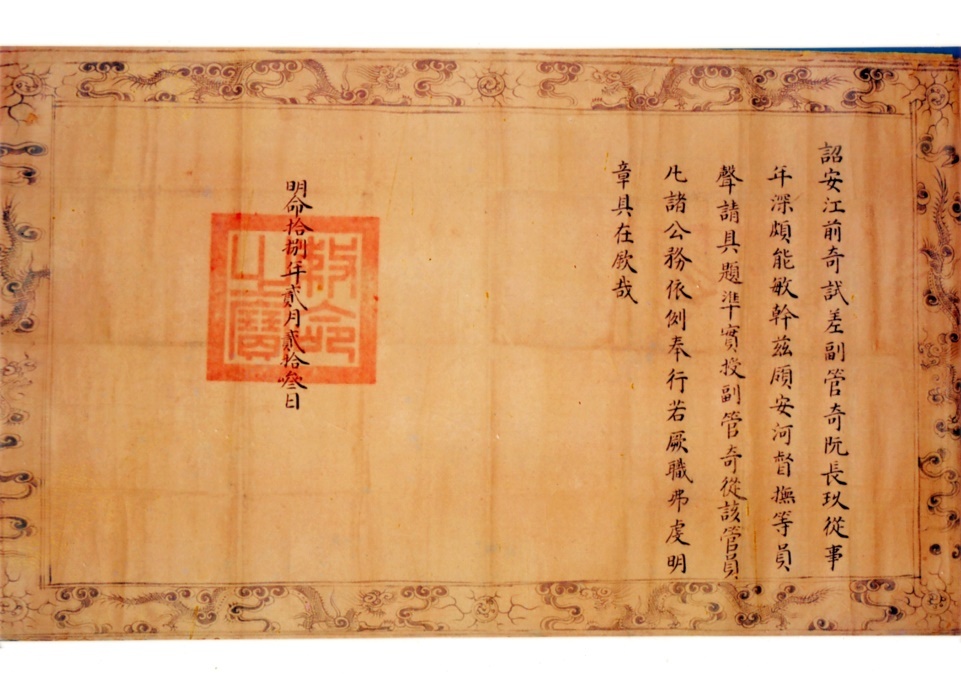 詔安江前奇試差副管奇阮長玖從事
年深頗能敏幹茲頋安河督撫等員
聲請具題準實授副管奇從該管員
凡諸公務依例奉行若厥職弗虔明
章具在欽哉
明命拾捌年貳月貳拾叁日
敕命之寶